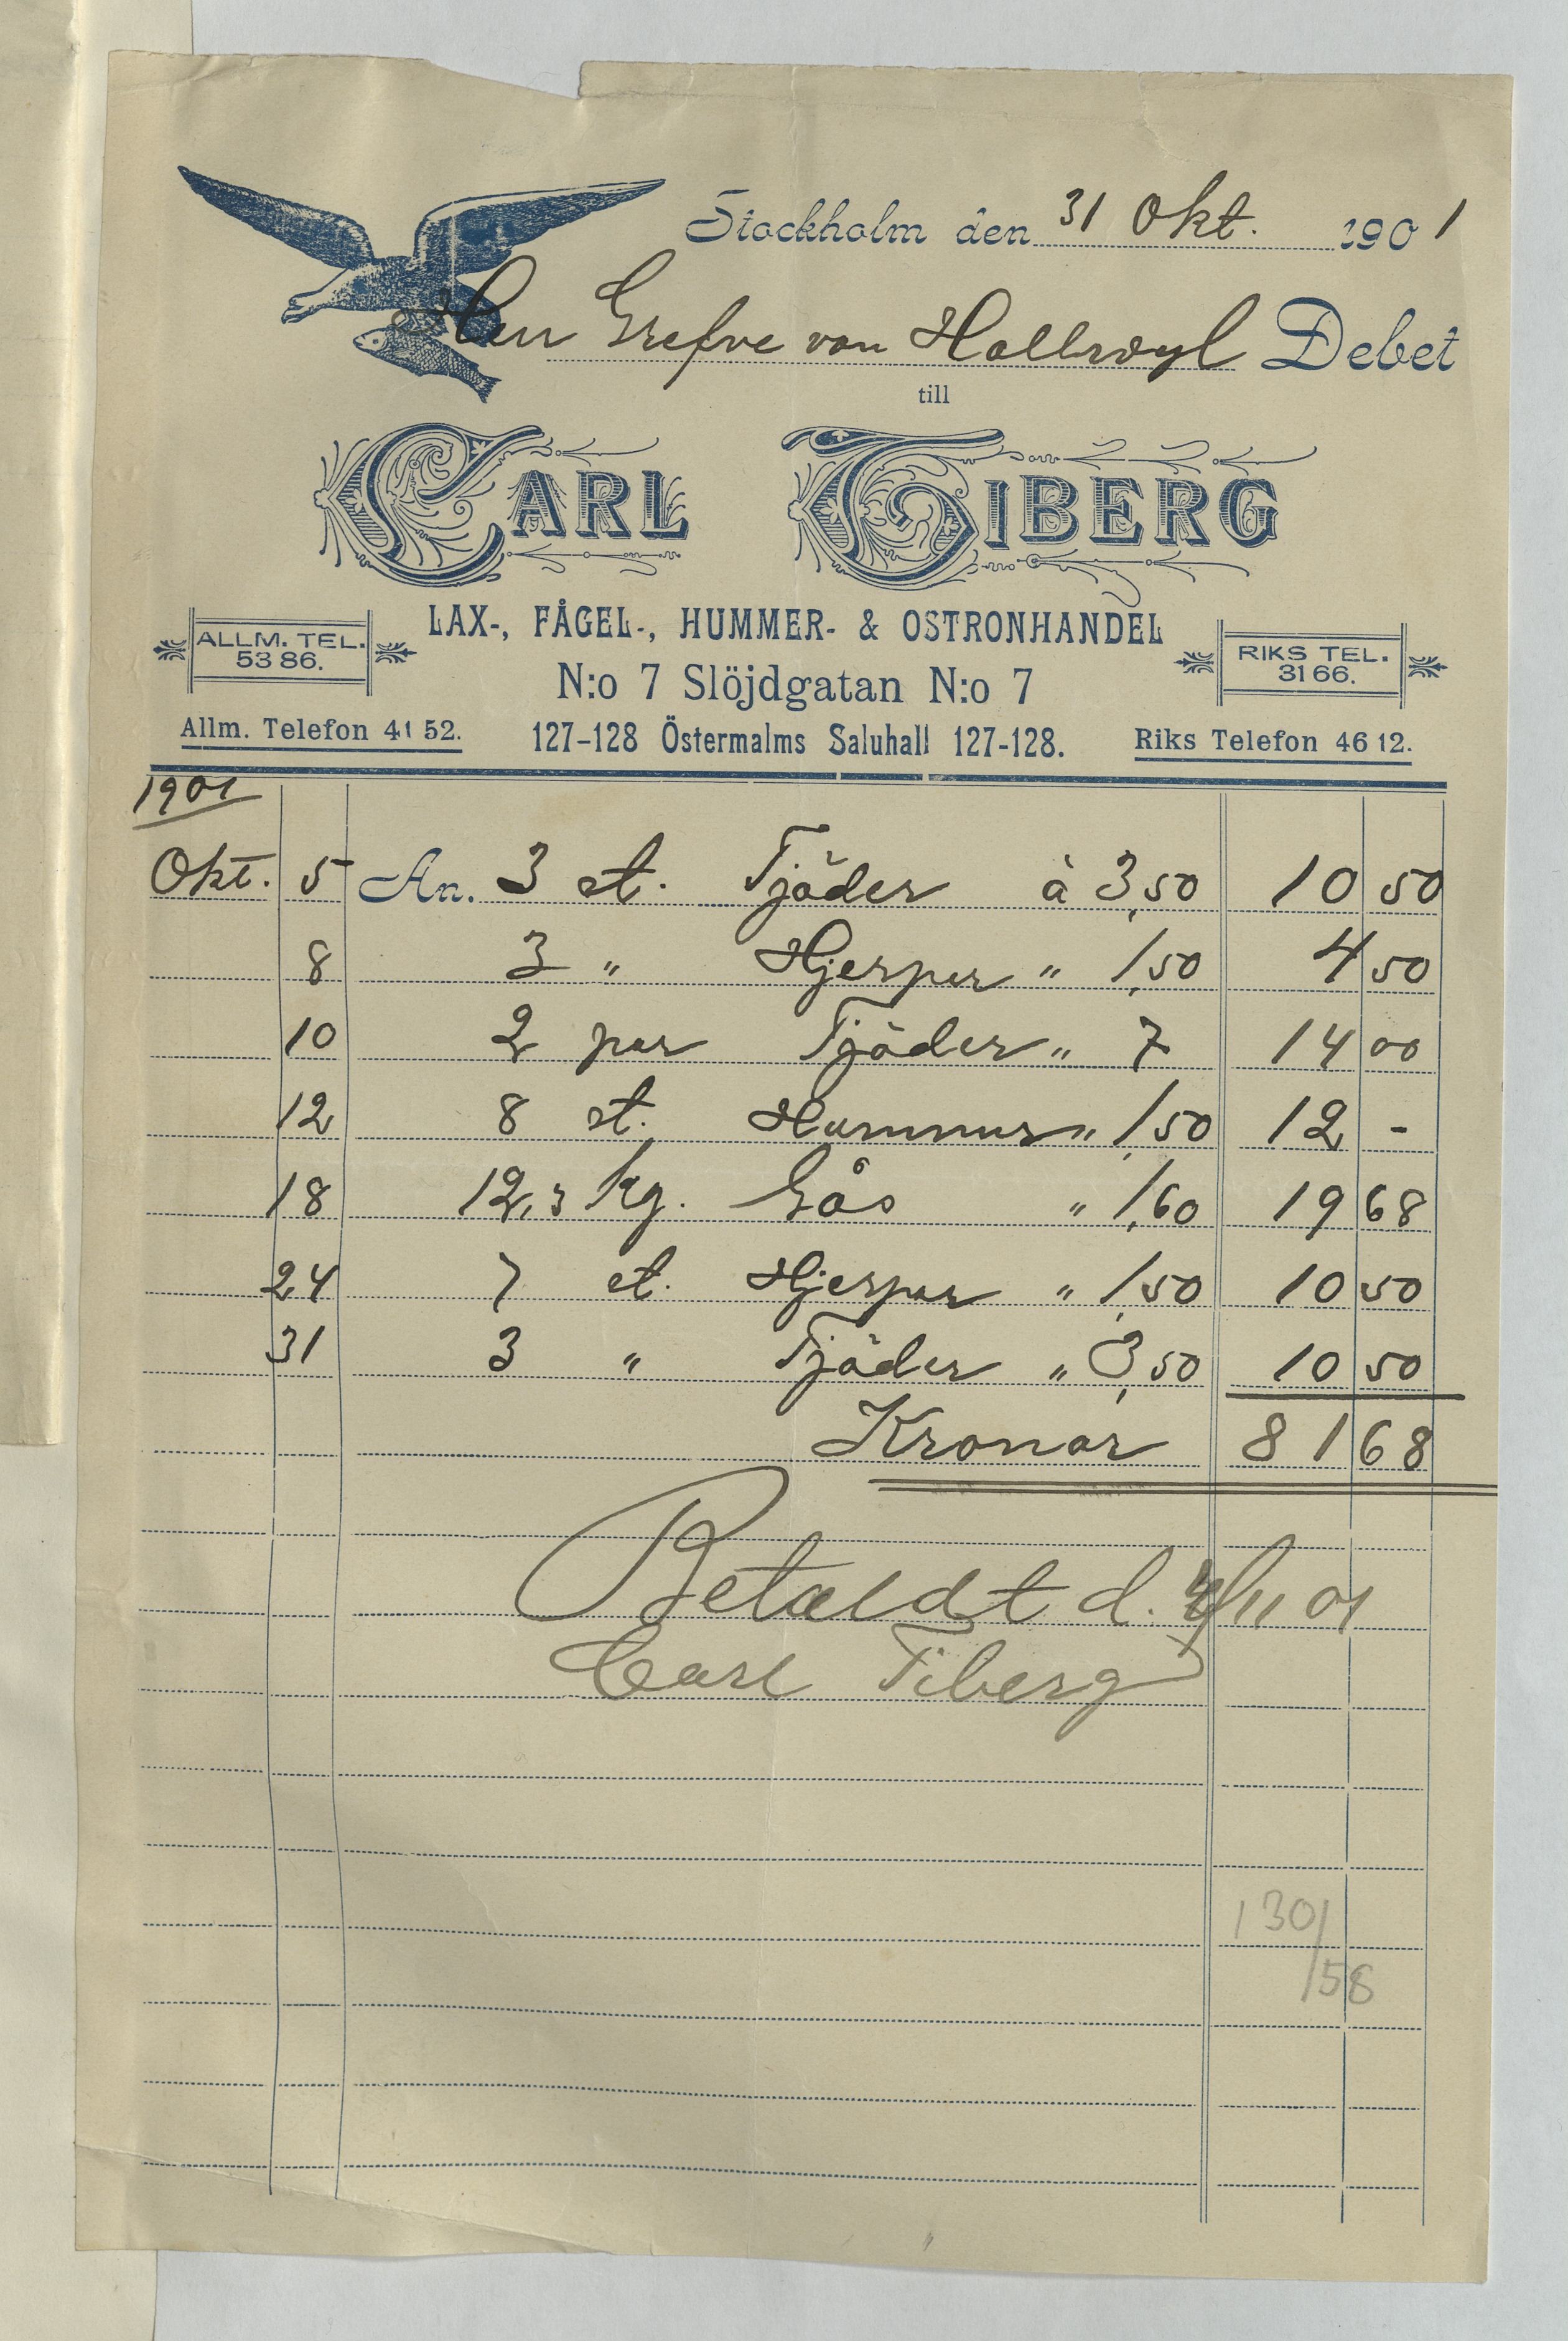 Stockholm den 31 Okt. 1901
Herr Grefve von Hallwyl Debet
till
CARL TIBERG
LAX-, FÅGEL-, HUMMER- & OSTRONHANDEL
ALLM. TEL. 53 86.
N:o 7 Slöjdgatan N:o 7
RIKS TEL. 31 66.
Allm. Telefon 41 52. 127-128 Östermalms Saluhall 127-128. Riks Telefon 46 12.
1901
Okt. 5 An. 3 st. Tjäder à 3,50 10 50
8 3 " Hjerpar " 1,50 4 50
10 2 par Tjäder " 7 14 00
12 8 st. Hummer " 1,50 12 -
18 12,3 kg. Gås " 1,60 19 68
24 7 st. Hjerpar " 1,50 10 50
31 3 " Tjäder " 3,50 10 50
Kronor 81 68
Betaldt d. /11 01
Carl Tiberg
130/
/58